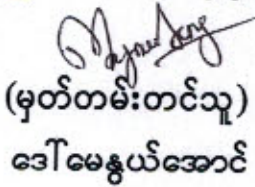 (မှတ်တမ်းတင်သူ)
ဒေါ်မေနွယ်အောင်